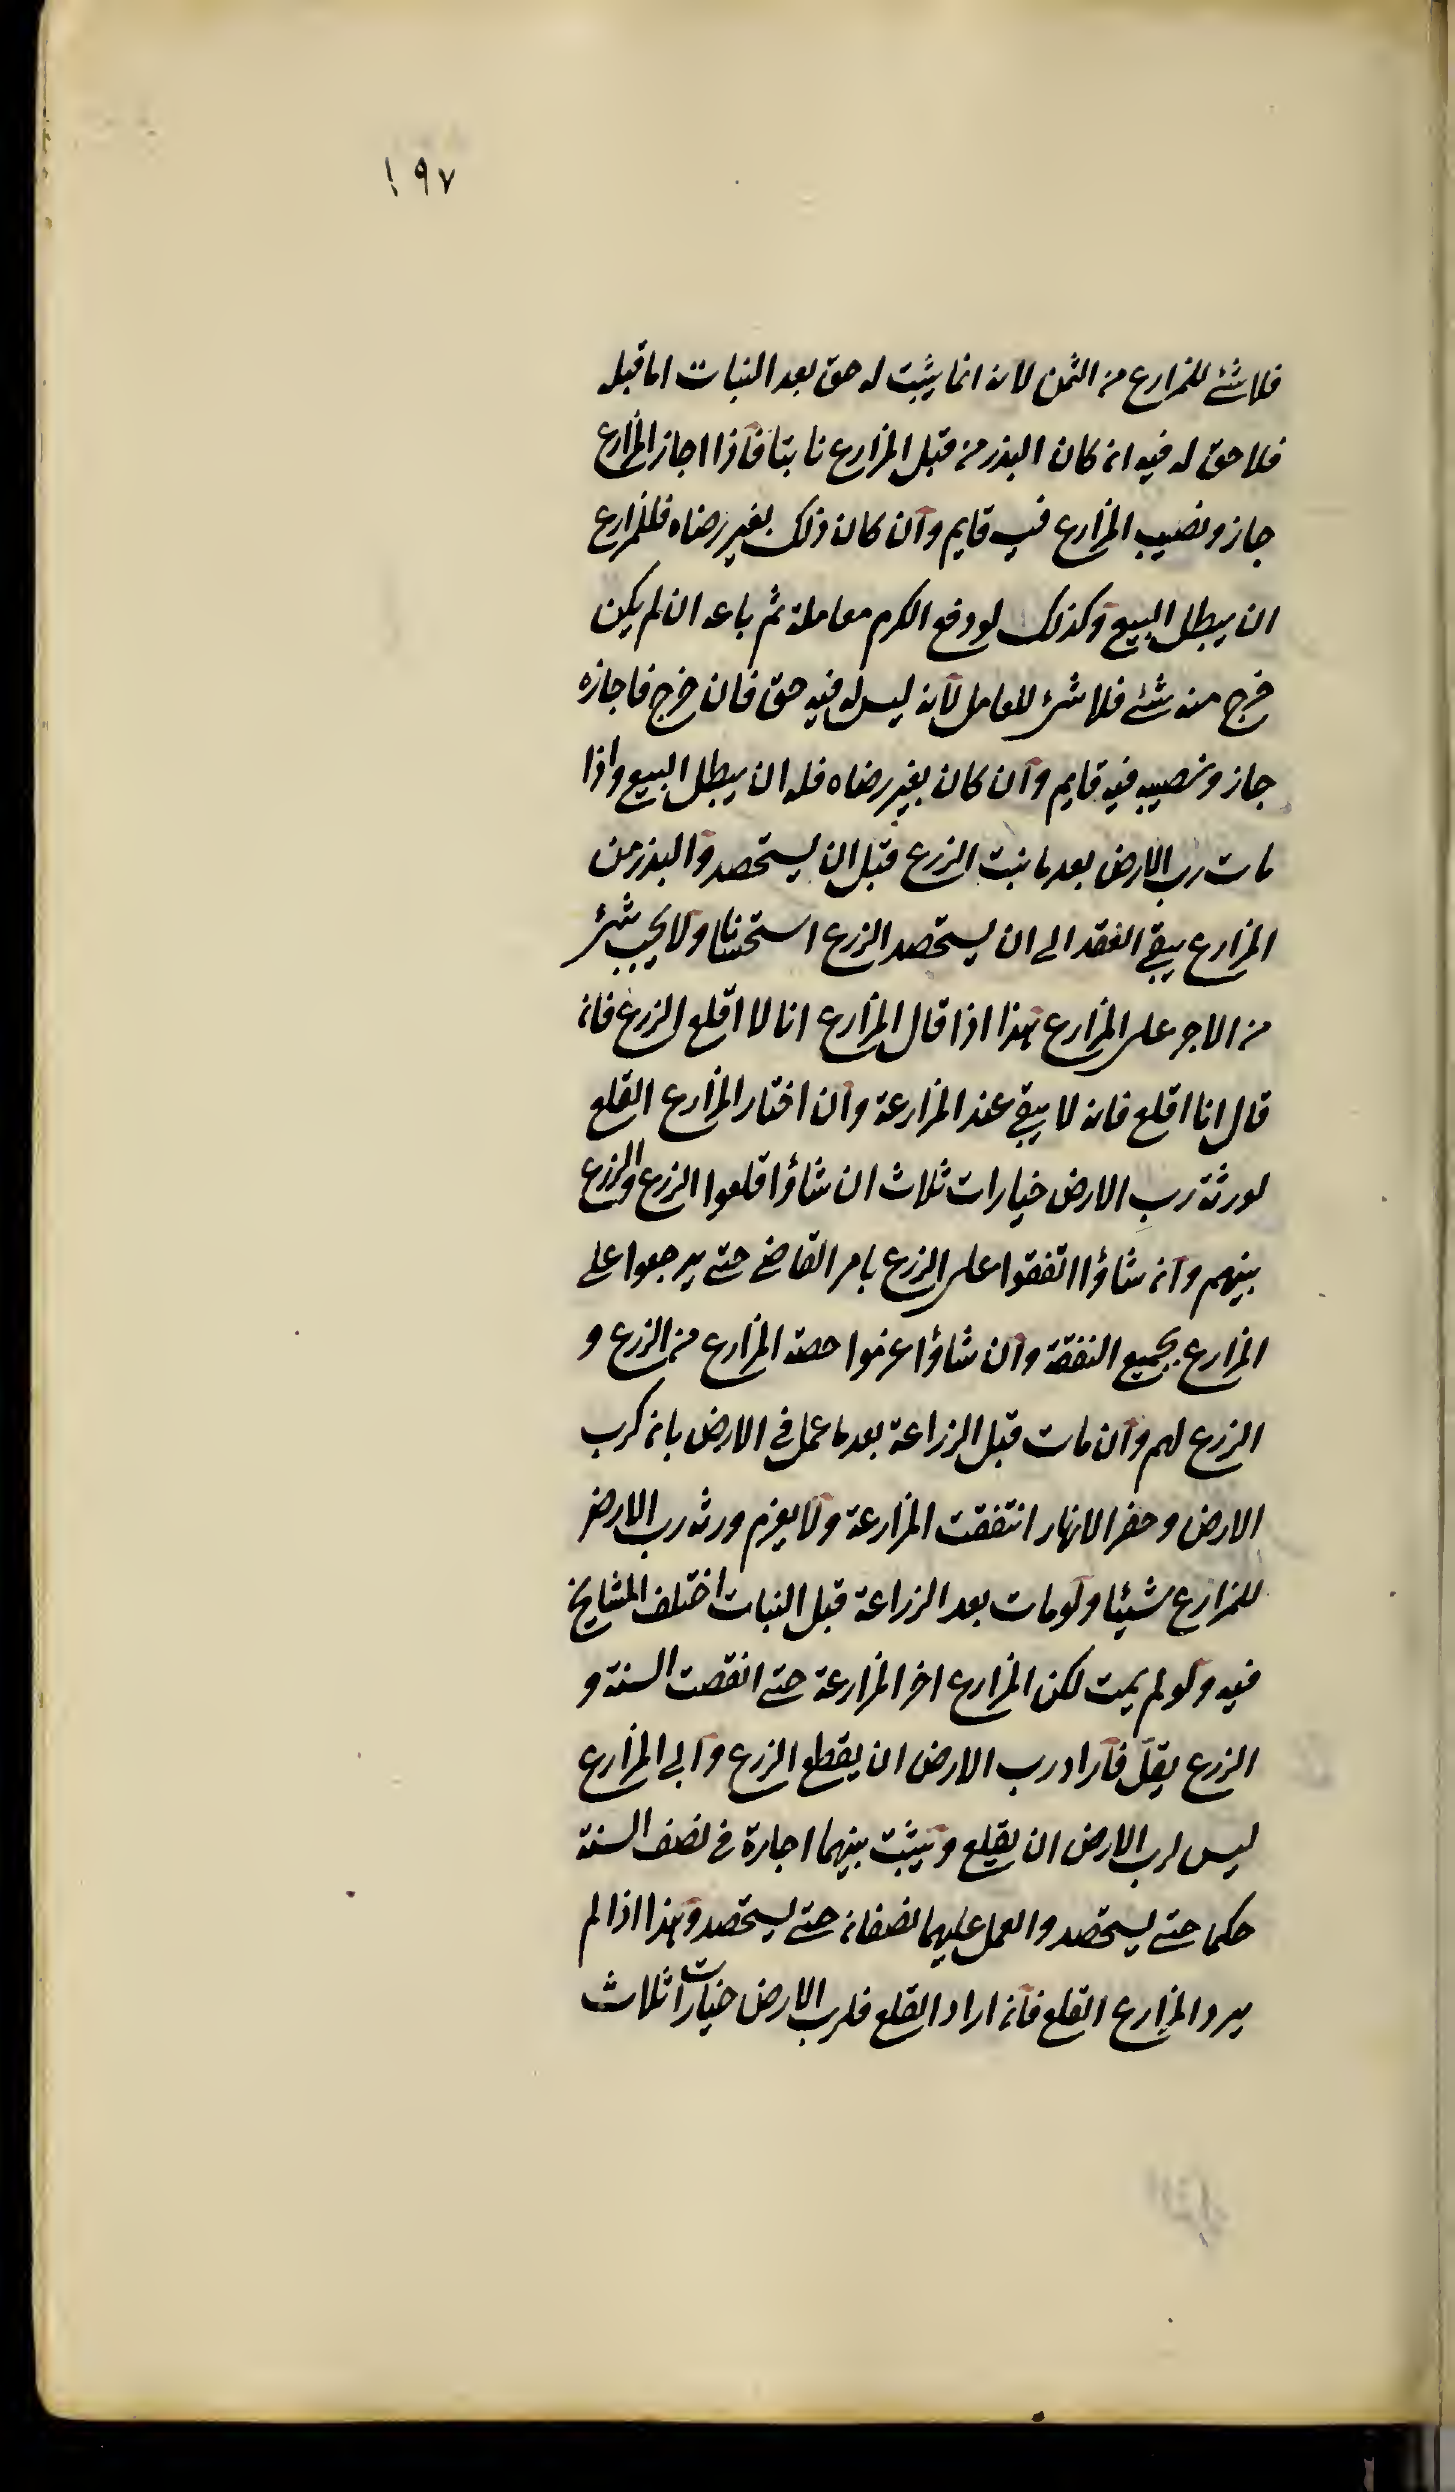 ١٩٧
فلا شئ للمزارع من الثمن لانه انما يثبت له حق بعد النبات اما قبله
فلا حق له فيه ان كان البذر من قبل المزارع نابتا فاذا اجاز المزارع
جاز ونصيب المزارع فيه قايم وان كان ذلك بغير رضاه فللمزارع
ان يبطل البيع وكذلك لو دفع الكرم معاملة ثم باعه ان لم يكن
خرج منه شئ فلا شئ للعامل لانه ليس له فيه حق فان خرج فاجازه
جاز ونصيبه فيه قايم وان كان بغير رضاه فله ان يبطل البيع واذا
مات رب الارض بعد ما نبت الزرع قبل ان يستحصد والبذر من
المزارع يبقى العقد الى ان يستحصد الزرع استحسانا ولا يجب شئ
من الاجر على المزارع هذا اذا قال المزارع انا لا اقلع الزرع فان
قال انا اقلع فانه لا يبقى عقد المزارعة وان اختار المزارع القلع
لورثة رب الارض خيارات ثلاث ان شاؤا قلعوا الزرع والزرع
بينهم وان شاؤا اتفقوا على الزرع بامر القاضى حتى يرجعوا على
المزارع بجميع النفقة وان شاؤا غرموا حصة المزارع من الزرع و
الزرع لهم وان مات قبل الزراعة بعد ما عمل فى الارض بان كرب
الارض وحفر الانهار انتفقت المزارعة ولا يغرم ورثة رب الارض
للمزارع شيئا ولو مات بعد الزراعة قبل النبات اختلف المشايخ
فيه ولو لم يمت لكن المزارع اخر المزارعة حتى انقضت السنة و
الزرع بقل فاراد رب الارض ان يقطع الزرع وابى المزارع
ليس لرب الارض ان يقلع ويثبت بينهما اجارة فى نصف السنة
حكما حتى يستحصد والعمل عليهما نصفان حتى يستحصد وهذا اذا لم
يرد المزارع القلع فان اراد القلع فلرب الارض خيارات ثلاث